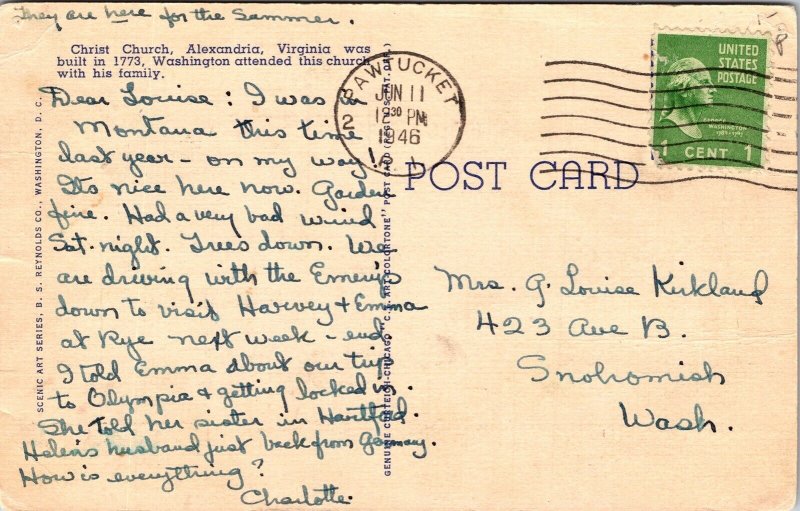 They are here for the Summer.
Christ Church, Alexandria, Virginia was
built in 1773, Washington attended this church
with his family.
Dear Louise: I was in
Montana this time
last year - on my way!
Its nice here now. Garden
fine. Had a very bad wind
Sat. night. Trees down. We
are driving with the Emerys
down to visit Harvey + Emma
at Rye next week-end.
I told Emma about our trip
to Olympia & getting locked in.
She told her sister in Hartford.
Helen's husband just back from Germany.
How is everything?
Charlotte.
SCENIC ART SERIES, B. S. REYNOLDS CO., WASHINGTON, D. C.
GENUINE CURTEICH-CHICAGO "C. T. ART-COLORTONE" POST CARD (REG. U.S. PAT. OFF.)
PAWTUCKET
JUN 11
12 30 PM
1946
2
UNITED
STATES
POSTAGE
GEORGE
WASHINGTON
1 CENT 1
POST CARD
Mrs. G. Louise Kirkland
423 Ave B.
Snohomish
Wash.